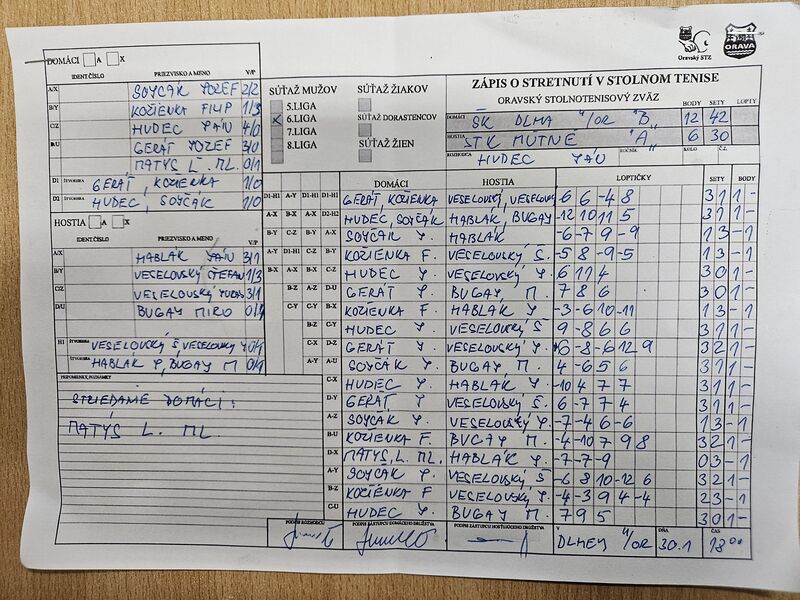 Oravský STZ
ORAVA
DOMÁCI A X
IDENT.ČÍSLO PRIEZVISKO A MENO V/P
A/X SOYČÁK JOZEF 2/2
B/Y KOŽIENKA FILIP 1/3
C/Z HUDEC JÁN 4/0
D/U GERÁT JOZEF 3/0
MATYS L. ML. 0/1
D1 ŠTVORHRA GERÁT, KOZIENKA 1/0
D2 ŠTVORHRA HUDEC, SOYČÁK 1/0
HOSTIA A X
IDENT.ČÍSLO PRIEZVISKO A MENO V/P
A/X HABLÁK JÁN 3/1
B/Y VESELOVSKÝ ŠTEFAN 1/3
C/Z VESELOVSKÝ 3/1
D/U BUGAY MIRO 0/4
H1 ŠTVORHRA VESELOVSKÝ Š VESELOVSKÝ J 0/1
ŠTVORHRA HABLÁK J, BUGAY M 0/1
PRIPOMIENKY, POZNÁMKY
STRIEDANIE DOMÁCI:
MATYS L. ML.
SÚŤAŽ MUŽOV
5.LIGA
X 6.LIGA
7.LIGA
8.LIGA
SÚŤAŽ ŽIAKOV
SÚŤAŽ DORASTENCOV
SÚŤAŽ ŽIEN
ZÁPIS O STRETNUTÍ V STOLNOM TENISE
ORAVSKÝ STOLNOTENISOVÝ ZVÄZ BODY SETY LOPTY
DOMÁCI ŠK DLHÁ N/OR "B" 12 42
HOSTIA STK MÚTNE "A" 6 30
ROZHODCA HUDEC JÁN ROČNÍK KOLO Č.
DOMÁCI HOSTIA LOPTIČKY SETY BODY
D1-H1 A-Y D1-H1 D1-H1 GERÁT KOŽIENKA VESELOVSKÝ, VESELOVSKÝ -6 6 -4 8 3 1 1 -
A-X B-X A-X D2-H2 HUDEC, SOYČÁK HABLÁK, BUGAY -12 10 11 5 3 1 1 -
B-Y C-Z B-Y A-X SOYČÁK J. HABLÁK -6 -7 9 -9 1 3 - 1
A-Y D1-H1 C-Z B-Y KOŽIENKA F. VESELOVSKÝ Š. -5 8 -9 -5 1 3 - 1
B-X A-X B-X C-Z HUDEC J. VESELOVSKÝ J. 6 11 4 3 0 1 -
B-Z A-Z D-U GERÁT J. BUGAY M. 7 8 6 3 0 1 -
C-Y C-Y B-X KOZIENKA F. HABLÁK J -3 -6 10 -11 1 3 - 1
B-Z C-Y HUDEC J. VESELOVSKÝ Š 9 -8 6 6 3 1 1 -
C-X D-Z GERÁT J. VESELOVSKÝ J. 6 -8 -6 12 9 3 2 1 -
A-Y A-U SOYČÁK J. BUGAY M. 4 -6 5 6 3 1 1 -
C-X HUDEC J. HABLÁK J. -10 4 7 7 3 1 1 -
D-Y GERÁT J VESELOVSKÝ Š. 6 -7 7 4 3 1 1 -
A-Z SOYČÁK J. VESELOVSKÝ J -7 -4 6 -6 1 3 - 1
B-U KOZIENKA F. BUGAY M. -4 -10 7 9 8 3 2 1 -
D-X MATYS, L. ML. HABLÁK J -7 -7 -9 0 3 - 1
A-Y SOYČÁK J. VESELOVSKÝ Š -6 8 10 -12 6 3 2 1 -
B-Z KOŽIENKA F VESELOVSKÝ J. -4 -3 9 4 -4 2 3 - 1
C-U HUDEC J. BUGAY M 7 9 5 3 0 1 -
PODPIS ROZHODCU PODPIS ZÁSTUPCU DOMÁCEHO DRUŽSTVA PODPIS ZÁSTUPCU HOSŤUJÚCEHO DRUŽSTVA V DLHEJ N/OR DŇA 30.1 ČAS 18 00